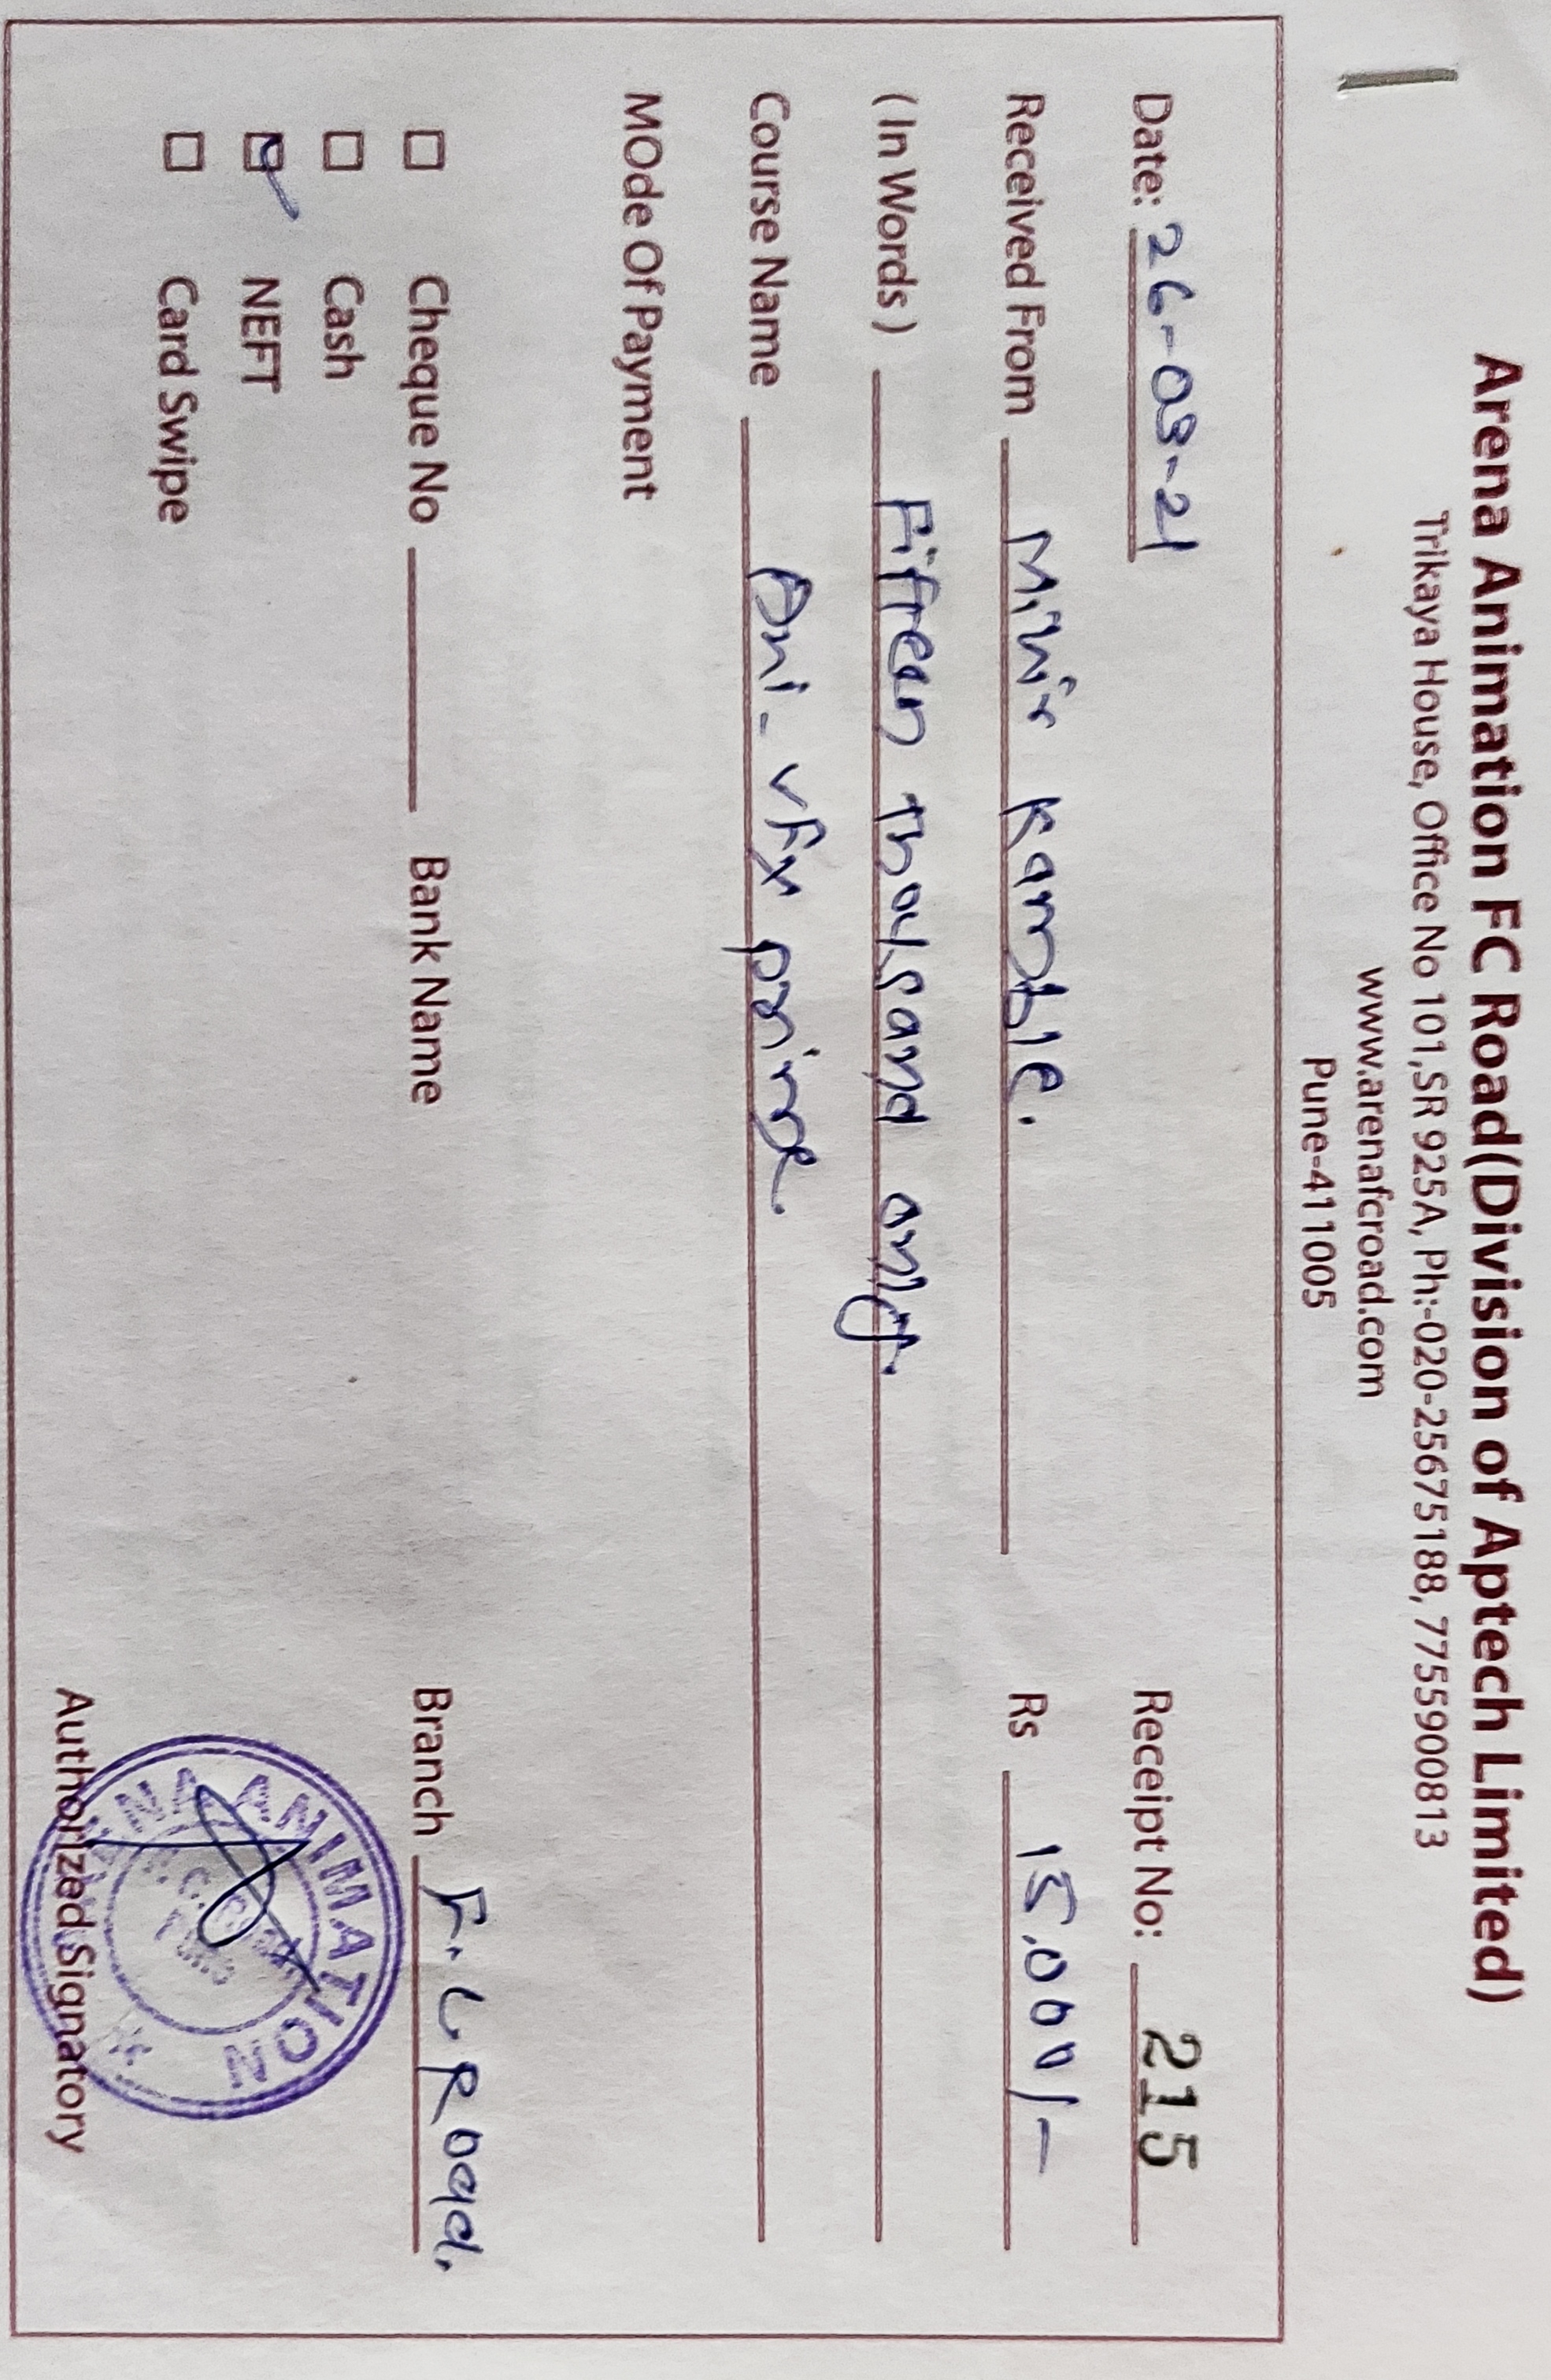 Arena Animation FC Road(Division of Aptech Limited)
Trikaya House, Office No 101,SR 925A, Ph:-020-25675188, 7755900813
www.arenafcroad.com
Pune-411005
Date: 26-03-21 Receipt No: 215
Received From Mihir Kamble. Rs 15,000/-
( In Words ) Fifteen Thousand only.
Course Name Ani-VFX prime.
MOde Of Payment
Cheque No Bank Name Branch F.C Road.
Cash
NEFT
Card Swipe
ARENA ANIMATION
Authorized Signatory